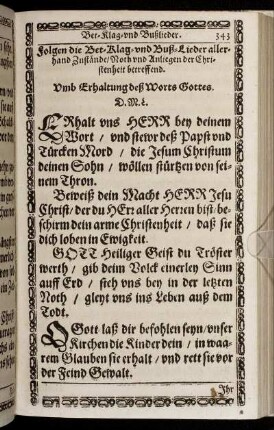 Bet-Klag-vnd Bußlieder. 343
Folgen die Bet-Klag-vnd Buß-Lieder aller-
hand Zustände / Noth vnd Anliegen der Chri-
stenheit betreffend.
Vmb Erhaltung deß Worts Gottes.
D. M. L.
ERhalt vns HERR bey deinem
Wort / vnd stewr deß Papst vnd
Türcken Mord / die Jesum Christum
deinen Sohn / wöllen stürtzen von sei-
nem Thron.
Beweiß dein Macht HERR Jesu
Christ / der du HErr aller Herren bist / be-
schirm dein arme Christenheit / daß sie
dich loben in Ewigkeit.
GOTT Heiliger Geist du Tröster
werth / gib deim Volck einerley Sinn
auff Erd / sieh vns bey in der letzten
Noth / gleyt vns ins Leben auß dem
Todt.
O Gott laß dir befohlen seyn / vnser
Kirchen die Kinder dein / in waa-
rem Glauben sie erhalt / vnd rett sie vor
der Feind Gewalt.
Ihr